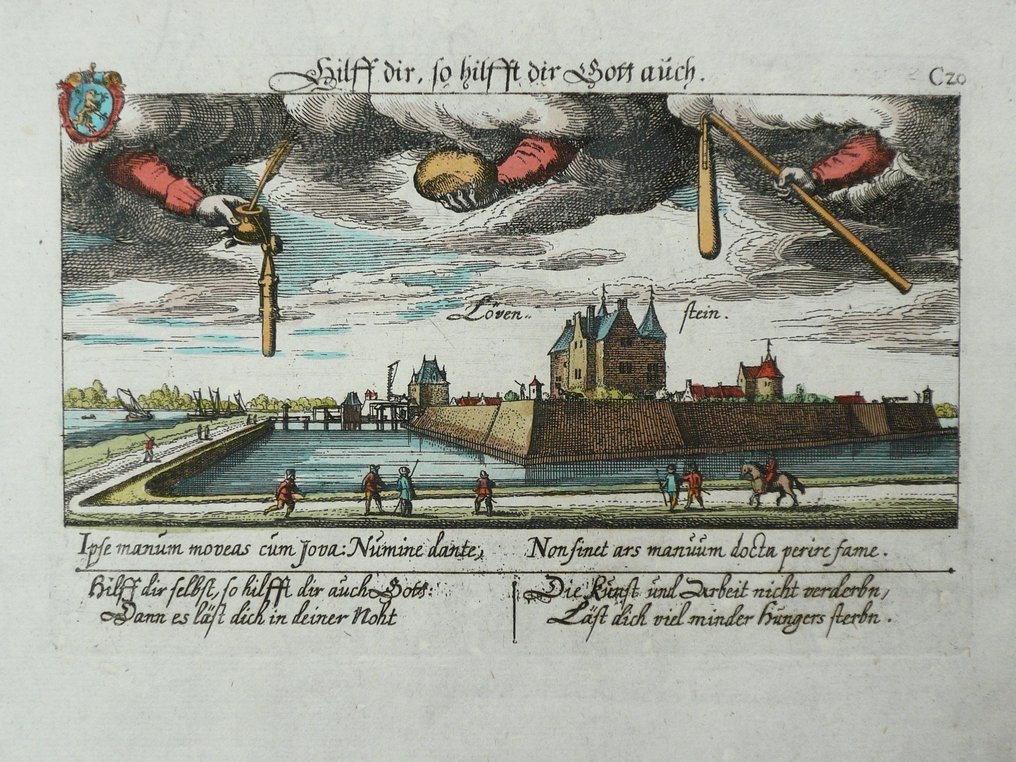 Hilff dir, so hilfft dir Gott auch.
C20
Löven..
stein.
Ipse manum moveas cum Jova: Numine dante,
Non sinet ars manuum docta perire fame.
Hilff dir selbst, so hilfft dir auch Gott:
Dann es läst dich in deiner Noht
Die Kunst und Arbeit nicht verderbn,
Läst dich viel minder Hungers sterbn.